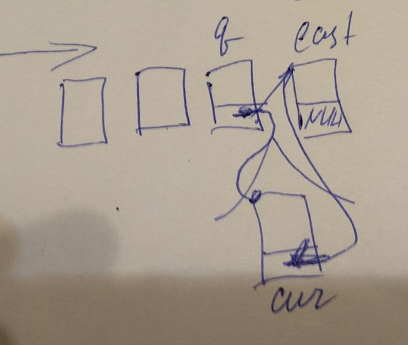 q east
NULL
cur